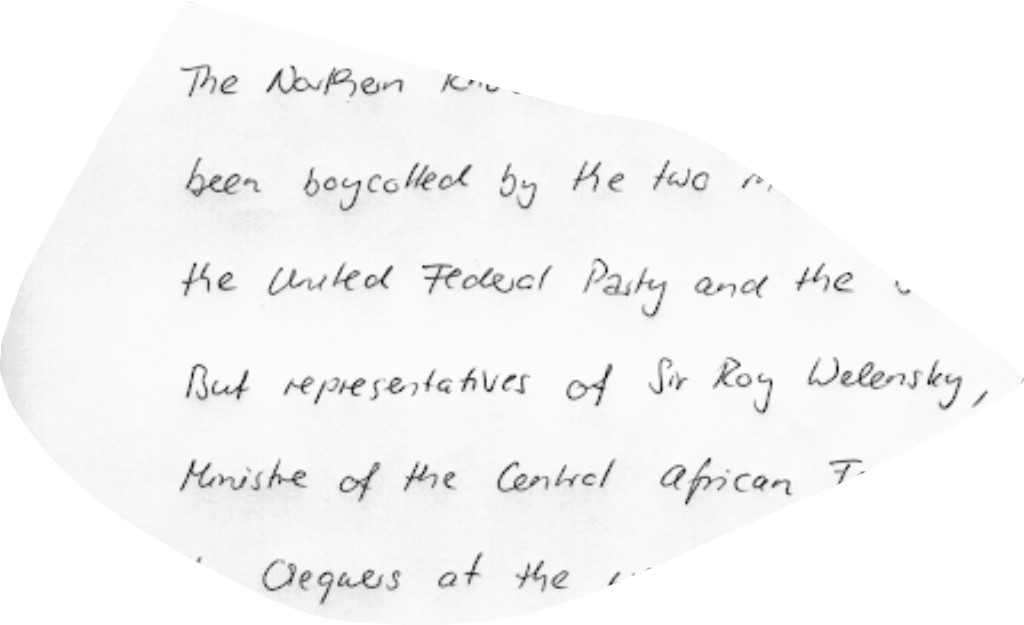 The Northern
been boycotted by the two
the United Federal Party and the
But representatives of Sir Roy Welensky,
Ministre of the Central African
Cheqners at the